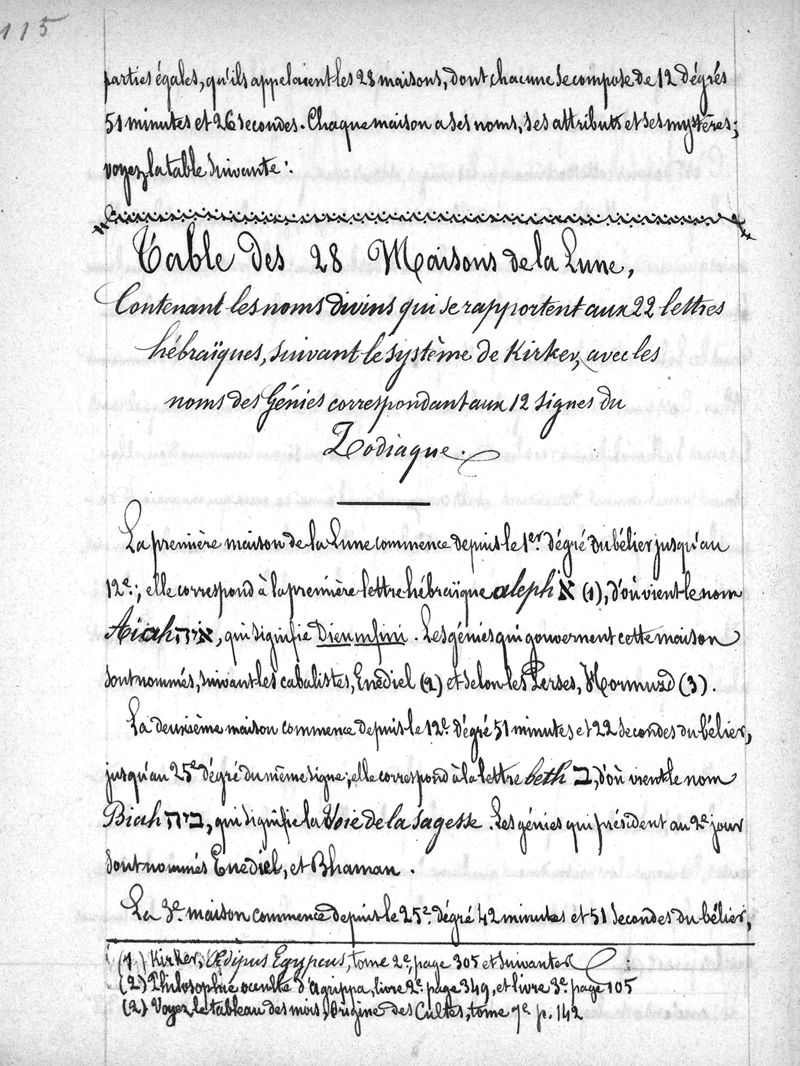 115
parties égales, qu'ils appelaient les 28 maisons, dont chacune se compose de 12 dégrés
51 minutes et 26 secondes. Chaque maison a ses noms, ses attributs et ses mystères;
voyez la table suivante:
Table des 28 Maisons de la Lune,
Contenant les noms divins qui se rapportent aux 22 lettres
hébraïques, suivant le système de Kirker, avec les
noms des Génies correspondant aux 12 signes du
Zodiaque.
La première maison de la Lune commence depuis le 1er. dégré du bélier jusqu'au
12e.; elle correspond à la première lettre hébraïque aleph א (1), d'où vient le nom
Aiah איה, qui signifie Dieu infini. Les génies qui gouvernent cette maison
sont nommés, suivant les cabalistes, Enediel (2) et selon les Perses, Hormuzd (3).
La deuxième maison commence depuis le 12e. dégré 51 minutes et 22 secondes du bélier,
jusqu'au 25e dégré du même signe; elle correspond à la lettre beth ב, d'où vient le nom
Biah ביה, qui signifie la Voie de la sagesse. Les génies qui président au 2e jour
sont nommés Enediel, et Bhaman.
La 3e. maison commence depuis le 25e. dégré 42 minutes et 51 secondes du bélier,
(1) Kirker, Œdipus Egypcus, tome 2e, page 305 et suivantes
(2) Philosophie occulte d'Agrippa, livre 2e page 349, et livre 3e page 105
(2) Voyez le tableau des mois, Origine des Cultes, tome 7e p. 142